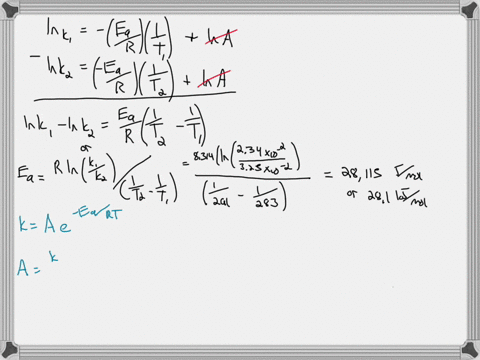 ln k₁ = -(Ea/R)(1/T₁) + ln A
- ln k₂ = (-Ea/R)(1/T₂) + ln A
ln k₁ - ln k₂ = Ea/R (1/T₂ - 1/T₁)
or
Ea = R ln(k₁/k₂) / (1/T₂ - 1/T₁) = 8.314 (ln(2.34 x10⁻² / 3.25 x10⁻²)) / (1/291 - 1/283) = 28,115 J/mol
or 28.1 kJ/mol
k = A e^(-Ea/RT)
A = k